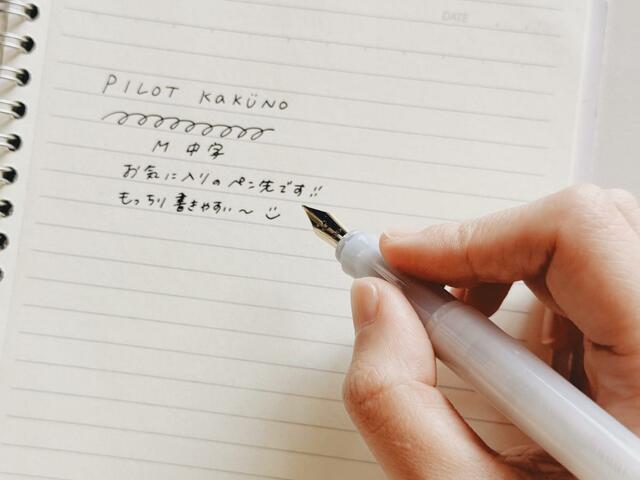 DATE
PILOT KaKüNO
M 中字
お気に入りのペン先です!!
もっちり書きやすい〜